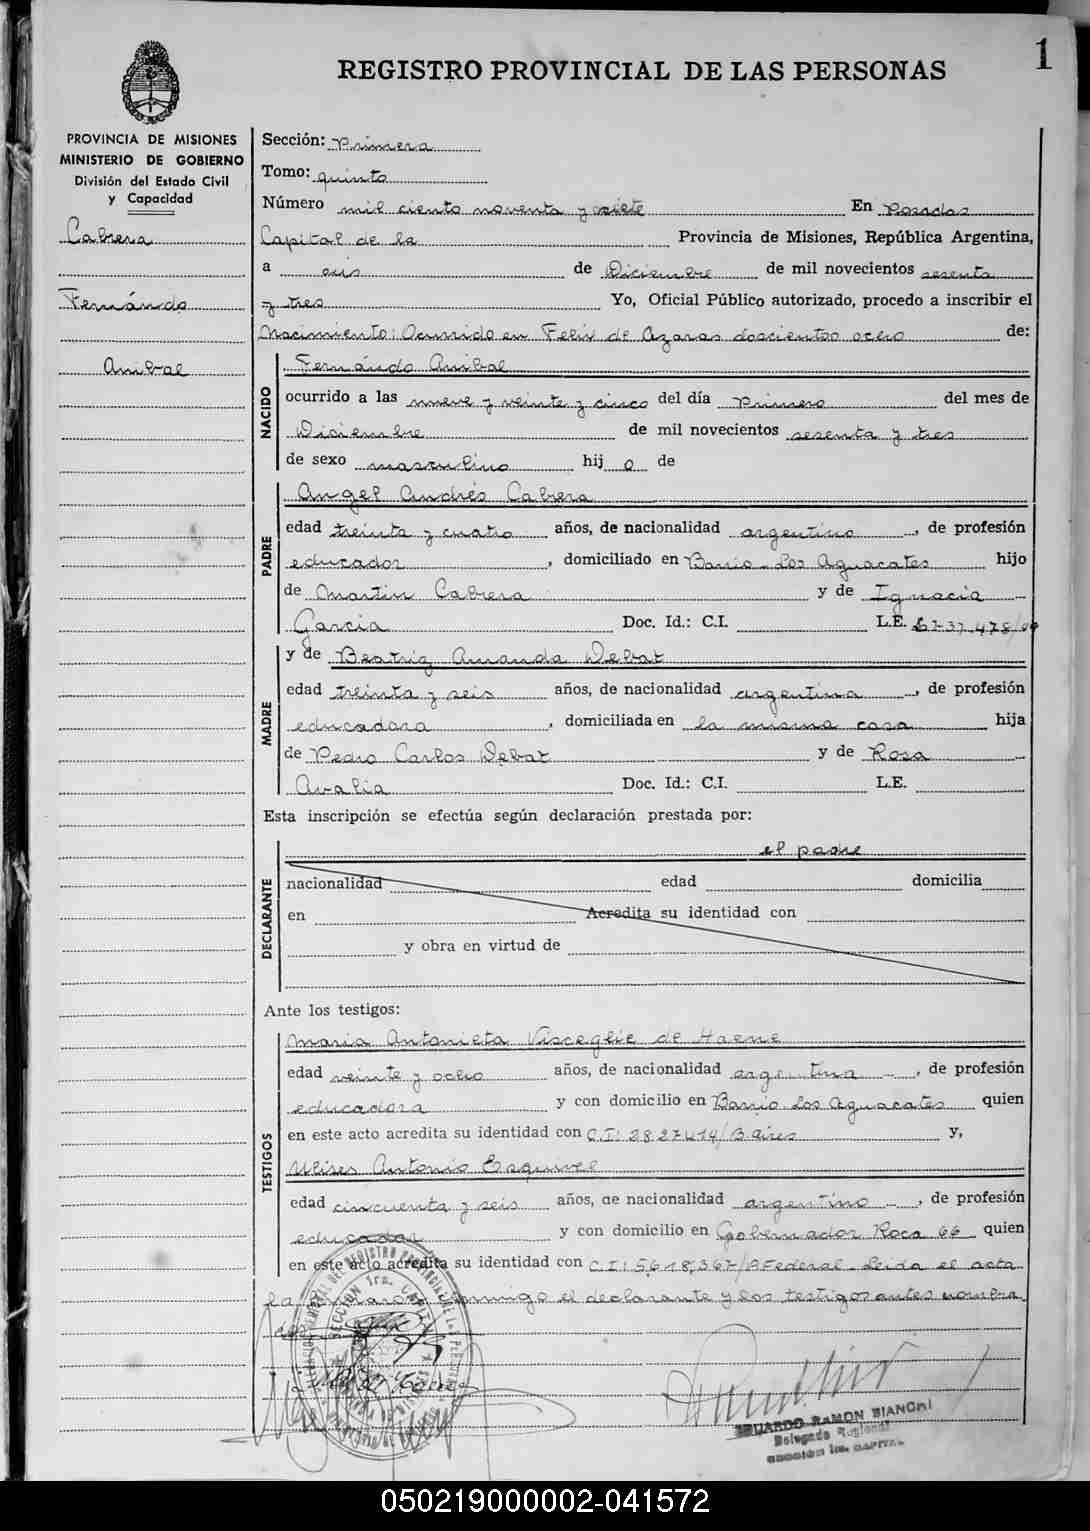 1
REGISTRO PROVINCIAL DE LAS PERSONAS
PROVINCIA DE MISIONES
MINISTERIO DE GOBIERNO
División del Estado Civil
y Capacidad
Cabrera
Fernándo
Anibal
Sección: Primera
Tomo: quinto
Número mil ciento noventa y siete En Posadas
Capital de la Provincia de Misiones, República Argentina,
a seis de Diciembre de mil novecientos sesenta
y tres Yo, Oficial Público autorizado, procedo a inscribir el
Nacimiento: Ocurrido en Felix de Azaras doscientos ocho de:
NACIDO
Fernándo Anibal
ocurrido a las nueve y veinte y cinco del día Primero del mes de
Diciembre de mil novecientos sesenta y tres
de sexo masculino hij o de
PADRE
Angel Andrés Cabrera
edad treinta y cuatro años, de nacionalidad argentino, de profesión
educador, domiciliado en Barrio Los Aguacates hijo
de Martin Cabrera y de Ignacia
Garcia Doc. Id.: C.I. L.E.
MADRE
y de Beatriz Amanda Debat
edad treinta y seis años, de nacionalidad argentina, de profesión
educadora, domiciliada en la misma casa hija
de Pedro Carlos Debat y de Rosa
Avalia Doc. Id.: C.I. L.E.
Esta inscripción se efectúa según declaración prestada por:
el padre
DECLARANTE
nacionalidad edad domicilia
en Acredita su identidad con
y obra en virtud de
Ante los testigos:
TESTIGOS
Maria Antonieta Visceglie de Haene
edad veinte y ocho años, de nacionalidad argentina, de profesión
educadora y con domicilio en Barrio Los Aguacates quien
en este acto acredita su identidad con C.I: 3827414/B.aires y,
Ulises Antonio Esquivel
edad cincuenta y seis años, de nacionalidad argentino, de profesión
educador y con domicilio en Gobernador Roca 66 quien
en este acto acredita su identidad con C.I: 5.618.367/P.Federal. Leida el acta
la conmigo el declarante y los testigos antes nombra
SECCION 1ra.
EDUARDO RAMON BIANCHI
Delegado Regional
SECCION 1ra. CAPITAL
050219000002-041572